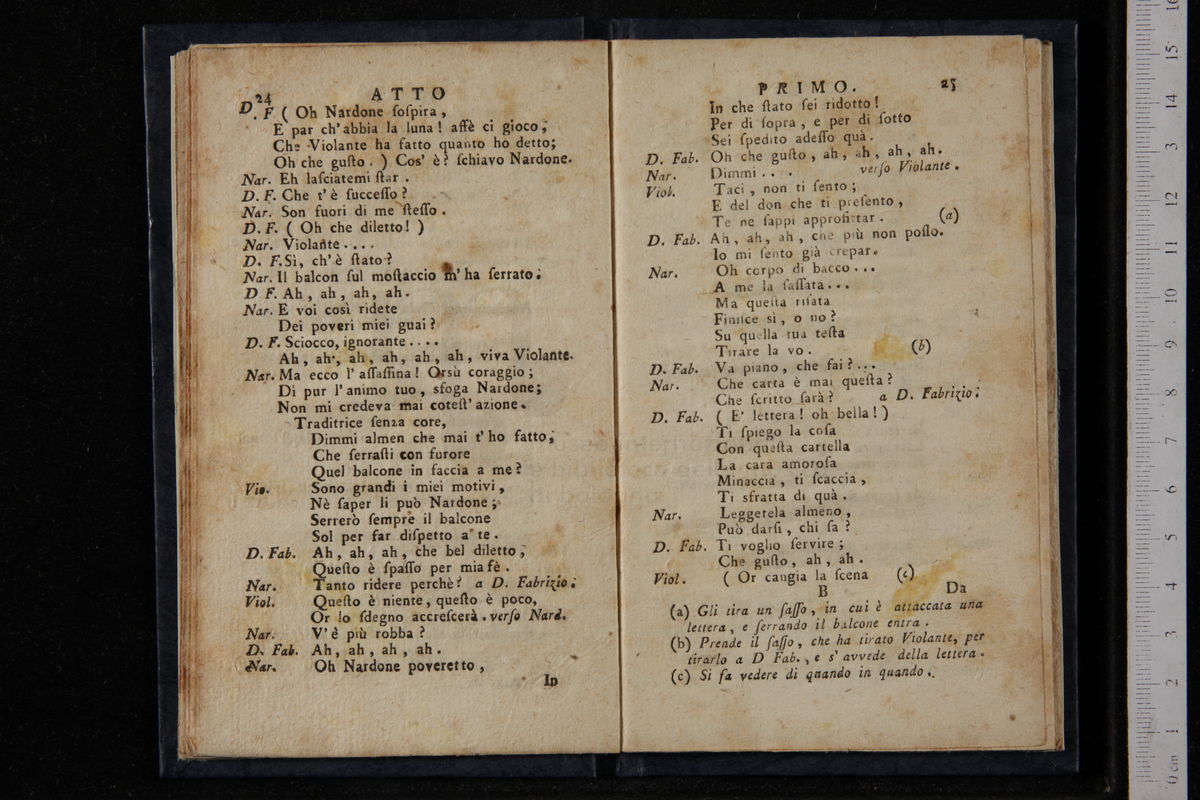 24
ATTO
D. F ( Oh Nardone ſoſpira ,
E par ch'abbia la luna ! affè ci gioco ;
Che Violante ha fatto quanto ho detto;
Oh che guſto . ) Cos' è ? ſchiavo Nardone.
Nar. Eh laſciatemi ſtar .
D. F. Che t'è ſucceſſo ?
Nar. Son fuori di me ſteſſo .
D. F. ( Oh che diletto ! )
Nar. Violante . . . .
D. F. Sì, ch'è ſtato ?
Nar. Il balcon ſul moſtaccio m'ha ſerrato .
D F. Ah , ah , ah , ah .
Nar. E voi così ridete
Dei poveri miei guai ?
D. F. Sciocco, ignorante . . . .
Ah , ah , ah , ah , ah , ah , viva Violante.
Nar. Ma ecco l'aſſaſſina ! Orsù coraggio ;
Dì pur l'animo tuo , sfoga Nardone;
Non mi credeva mai coteſt'azione .
Traditrice ſenza core,
Dimmi almen che mai t'ho fatto,
Che ſerraſti con furore
Quel balcone in faccia a me ?
Vio. Sono grandi i miei motivi ,
Nè ſaper li può Nardone ;
Serrerò ſempre il balcone
Sol per far diſpetto a te .
D. Fab. Ah , ah , ah , che bel diletto ,
Queſto è ſpaſſo per mia fè .
Nar. Tanto ridere perchè ? a D. Fabrizio .
Viol. Queſto è niente, queſto è poco,
Or lo ſdegno accreſcerà . verſo Nard.
Nar. V'è più robba ?
D. Fab. Ah, ah , ah , ah .
Nar. Oh Nardone poveretto ,
In
PRIMO.
25
In che ſtato ſei ridotto !
Per di ſopra , e per di ſotto
Sei ſpedito adeſſo quà .
D. Fab. Oh che guſto , ah , ah , ah , ah .
Nar. Dimmi . . . . verſo Violante .
Viol. Taci , non ti ſento ;
E del don che ti preſento ,
Te ne ſappi approfittar . (a)
D. Fab. Ah , ah , ah , che più non poſſo.
Io mi ſento già crepar.
Nar. Oh corpo di bacco . . .
A me la ſaſſata . . .
Ma queſta riſata
Finiſce sì , o no ?
Su quella tua teſta
Tirare la vo . (b)
D. Fab. Va piano , che fai ? . . .
Nar. Che carta è mai queſta ?
Che ſcritto ſarà ? a D. Fabrizio .
D. Fab. ( E' lettera ! oh bella ! )
Ti ſpiego la coſa
Con queſta cartella
La cara amoroſa
Minaccia , ti ſcaccia ,
Ti sfratta di quà .
Nar. Leggetela almeno ,
Può darſi , chi ſa ?
D. Fab. Ti voglio ſervire ;
Che guſto , ah , ah .
Viol. ( Or cangia la ſcena (c)
B Da
(a) Gli tira un ſaſſo , in cui è attaccata una
lettera , e ſerrando il balcone entra .
(b) Prende il ſaſſo , che ha tirato Violante, per
tirarlo a D Fab. , e s'avvede della lettera .
(c) Si fa vedere di quando in quando .
0 cm 1 2 3 4 5 6 7 8 9 10 11 12 13 14 15 16